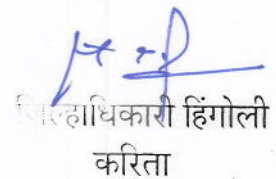 जिल्हाधिकारी हिंगोली
करिता